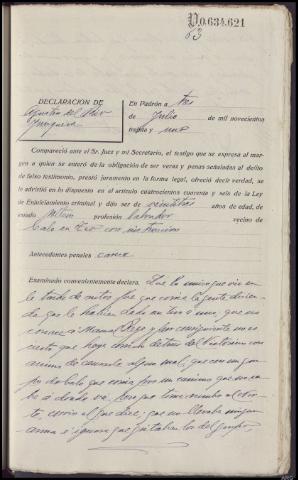 V.0.634.621
63
DECLARACION DE
Agustin del Rio
Junqueira
En Padrón a tres
de Julio de mil novecientos
treinta y uno
Compareció ante el Sr. Juez y mi Secretario, el testigo que se expresa al mar-
gen a quien se enteró de la obligación de ser veraz y penas señaladas al delito
de falso testimonio, prestó juramento en la forma legal, ofreció decir verdad, se
le advirtió en lo dispuesto en el artículo cuatrocientos cuarenta y seis de la Ley
de Enjuiciamiento criminal y dijo ser de veintitres años de edad, de
estado soltero profesión labrador vecino de
con instrucion
Antecedentes penales carece
Examinado convenientemente declara. Que lo unico que vio en
la tarde de autos fue que corria la gente dicien-
do que le habian dado un tiro a uno, que no
conoce a Manuel y por consiguiente no es
cierto que haya salido detras de
animo de causarle algun mal, que con un gru-
po de bala que corria por un camino que no sa-
be a donde va, porque tenia miedo al
te, corrio el que dice; que no llevaba ningun
arma e ignora que gritaban los del grupo,